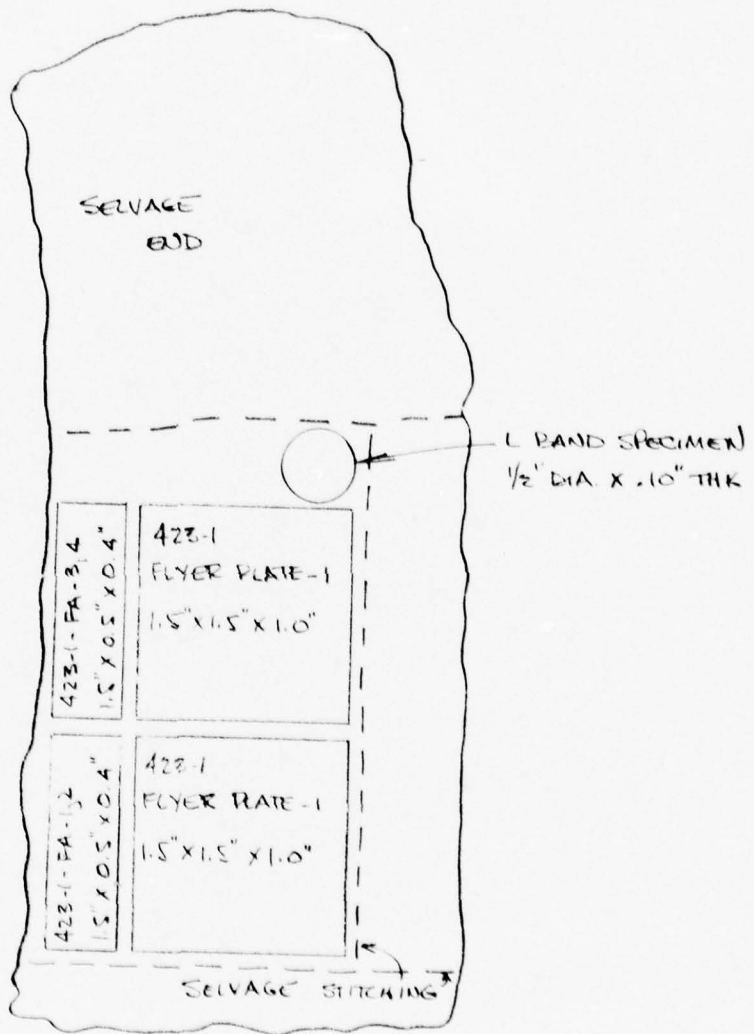 SELVAGE
END
L BAND SPECIMEN
1/2" DIA. X .10" THK
423-1-FA-3,4
1.5" X 0.5" X 0.4"
423-1
FLYER PLATE-1
1.5" X 1.5" X 1.0"
423-1-FA-1,2
1.5" X 0.5" X 0.4"
423-1
FLYER PLATE-1
1.5" X 1.5" X 1.0"
SELVAGE STITCHING